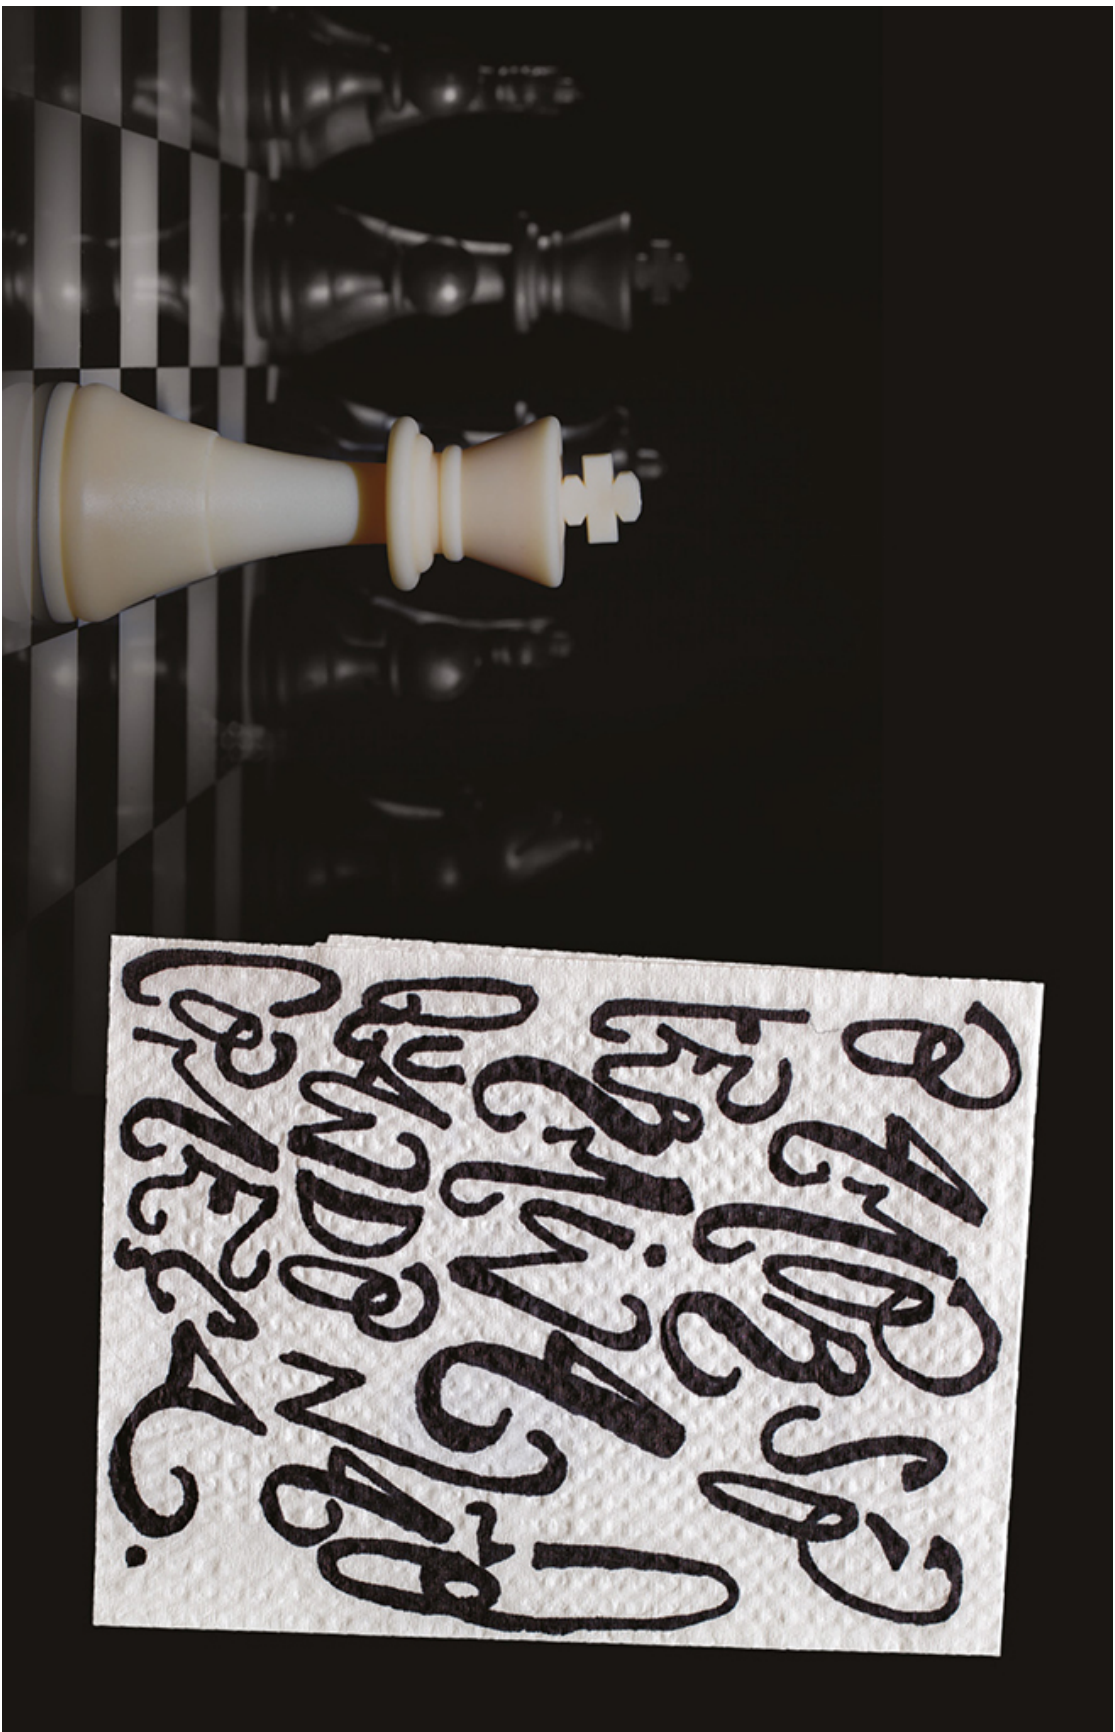 O AMOR SÓ
TERMINA
QUANDO NÃO
COMEÇA.